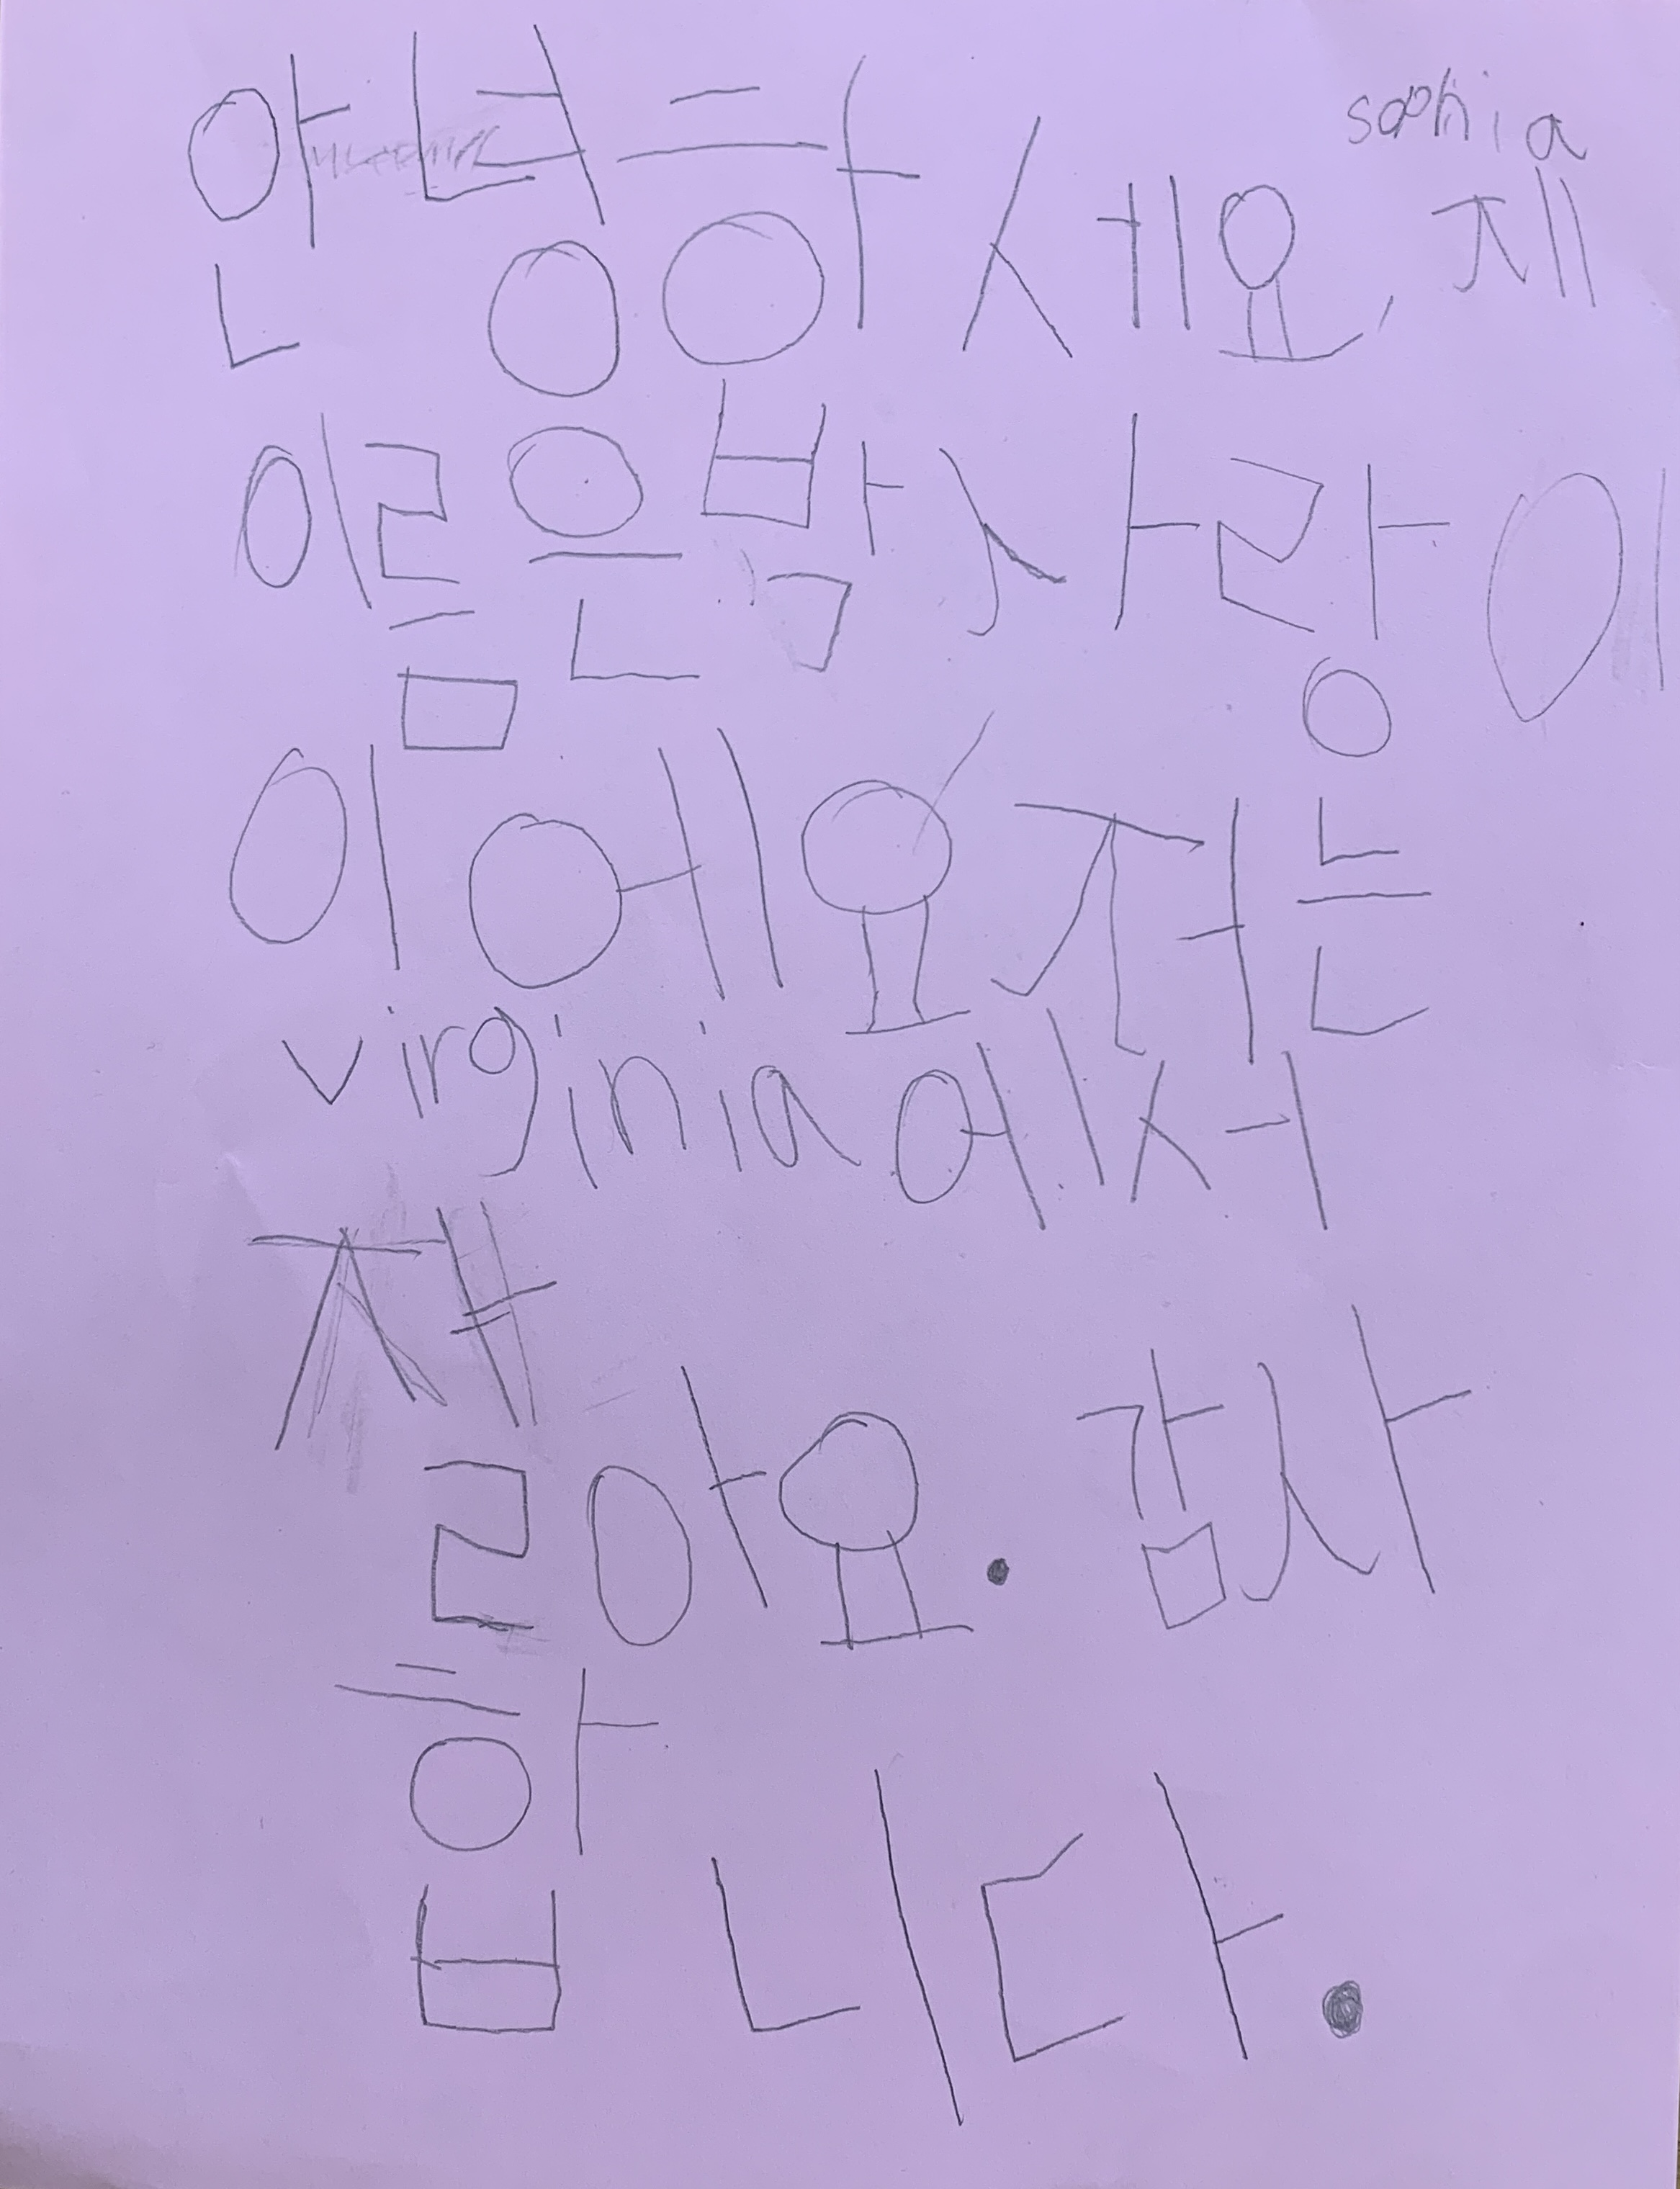 sophia
안녕하세요, 제
이름은 박사랑이
이에요 저는
virginia에서
쟐아요. 감사
합니다.